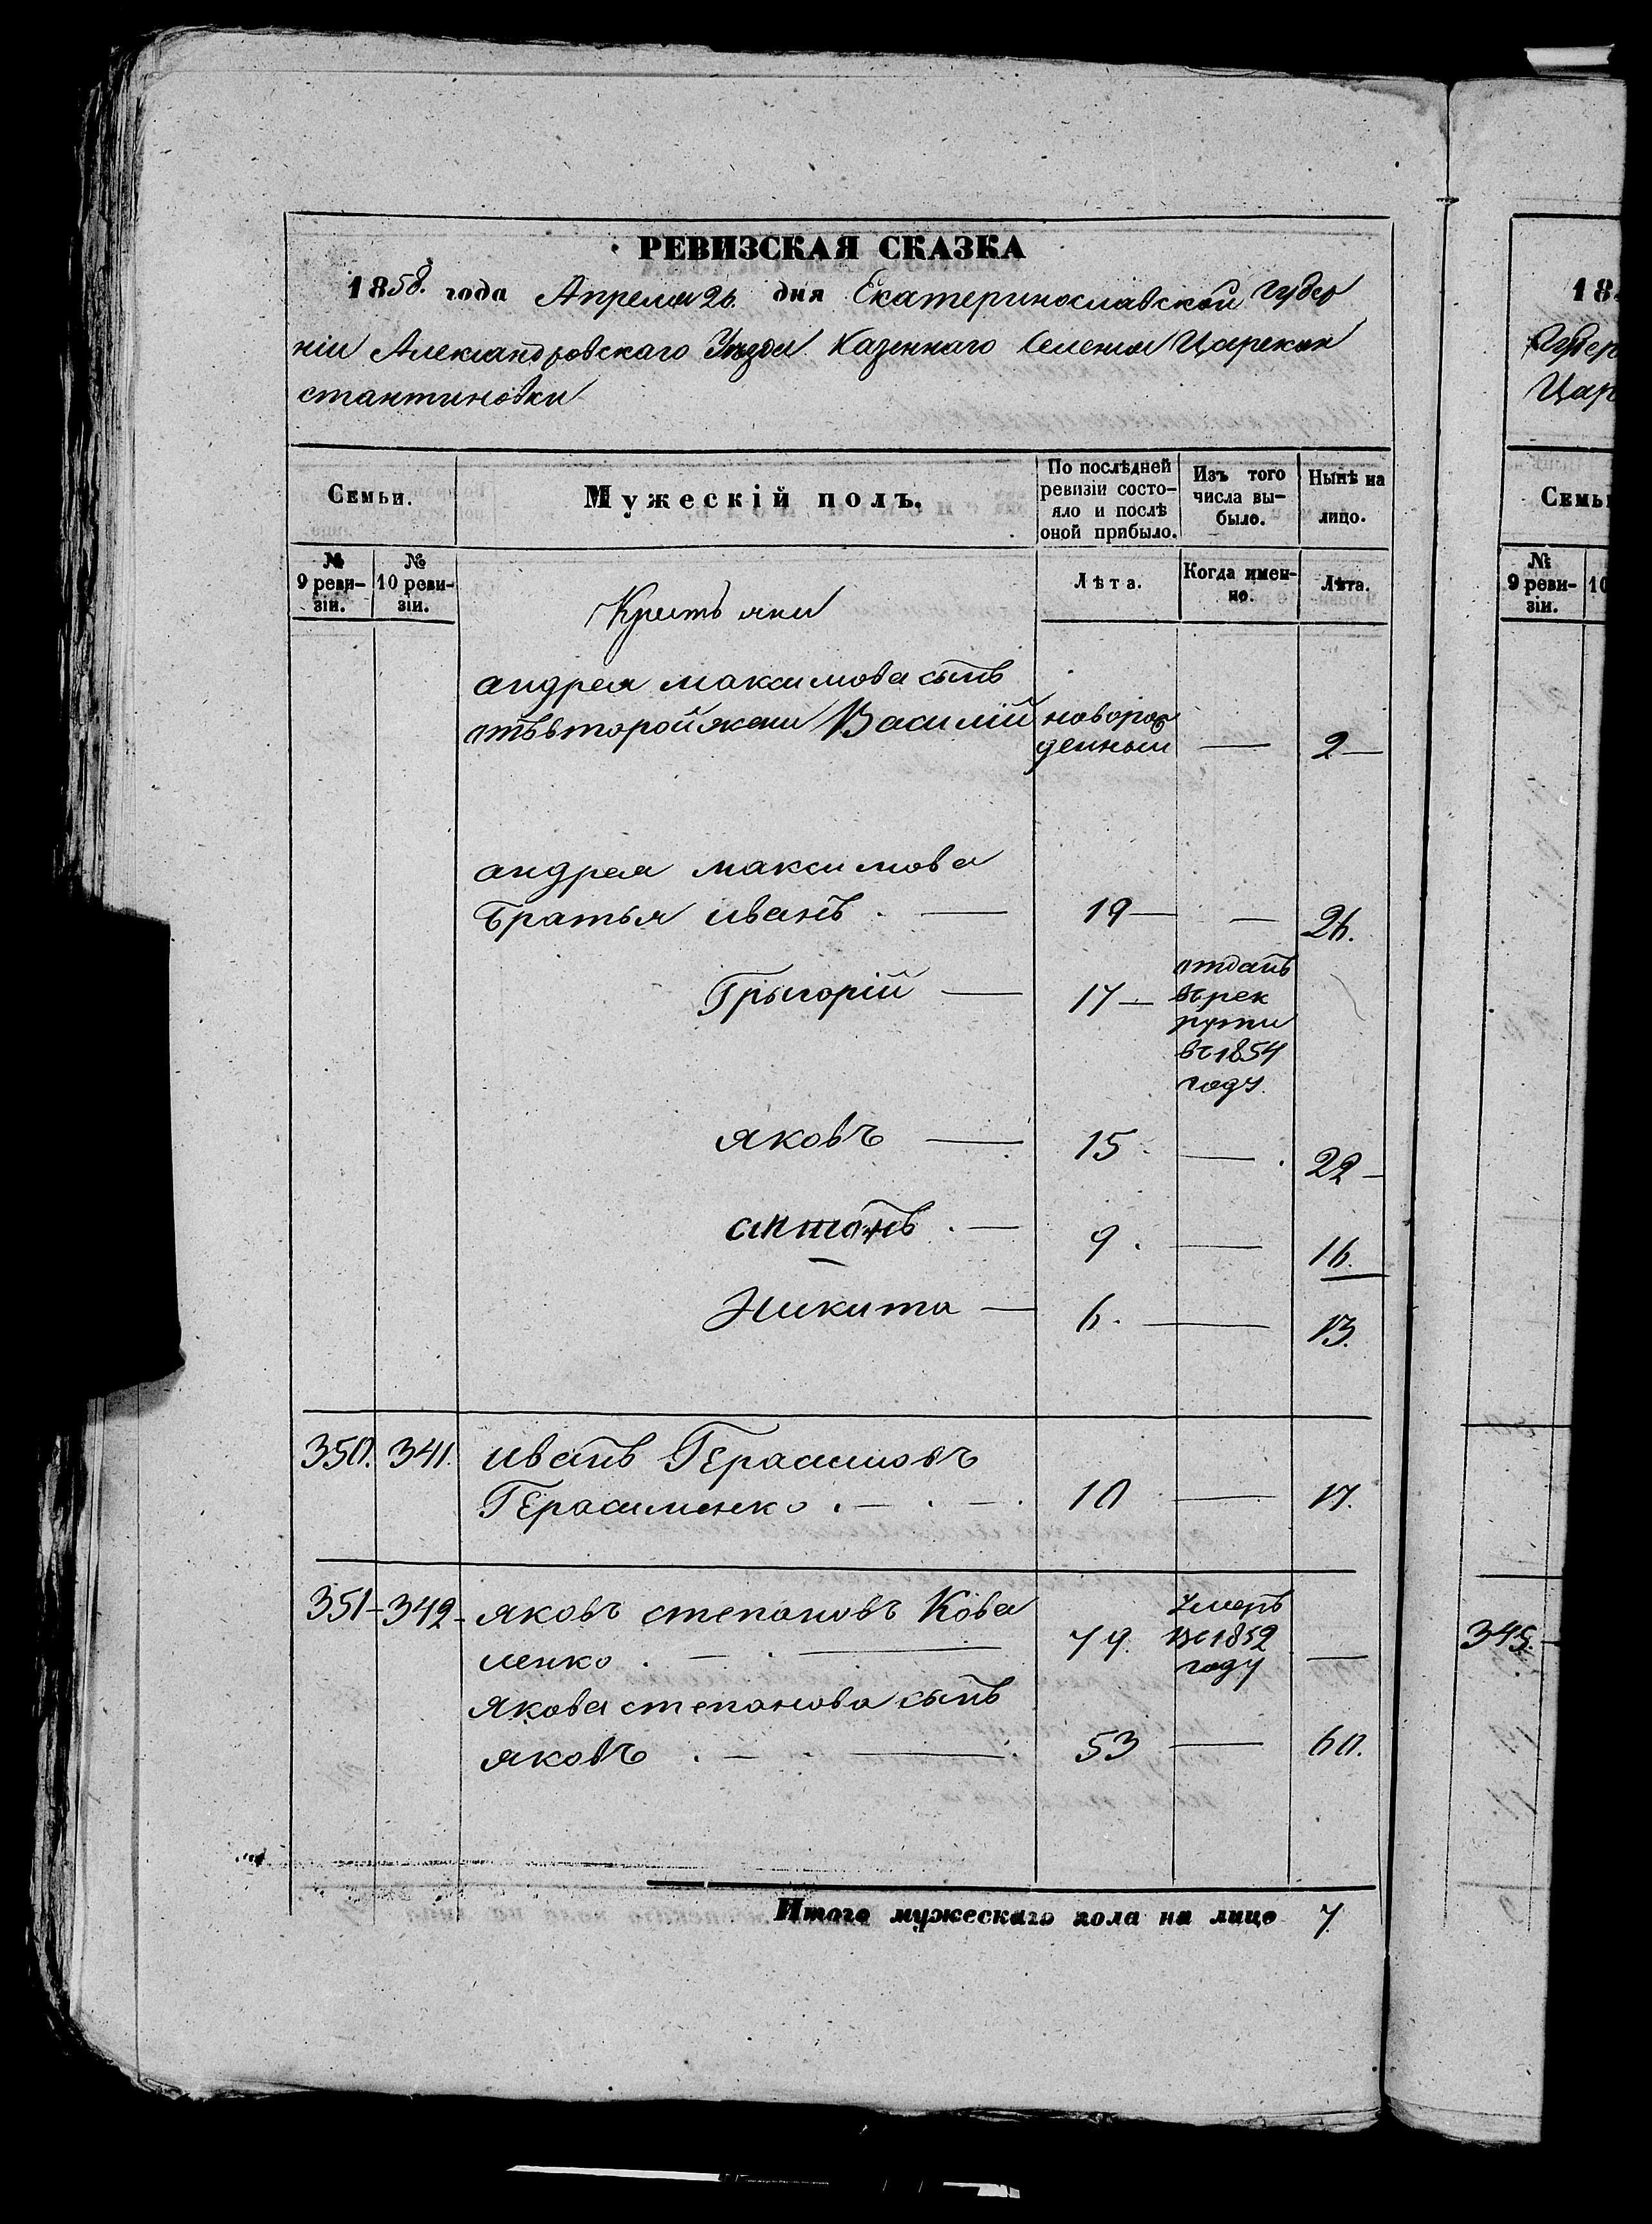 РЕВИЗСКАЯ СКАЗКА
1858. года Апреля 26. дня Екатеринославской Губер
ніи Александровскаго Уѣзда Казеннаго Селенія Царекон
стантиновки
Семьи.
Мужескій полъ.
По послѣдней ревизіи состо-
яло и послѣ
оной прибыло.
Изъ того
числа вы-
было.
Нынѣ на
лицо.
№
9 реви-
зіи.
№
10 реви-
зіи.
Лѣта.
Когда имен-
но.
Лѣта.
Крестьяни
андрея максимова сынъ
отъ второй жени Василій новорож
денный — 2 —
андрея максимова
братья иванъ . — 19 — — 26.
Грыгорій — 17 — отданъ
въ рек
рути
въ 1854
году.
яковъ — 15 — 22 —
антонъ . — 9 . — 16.
Никита — 6 . — 13.
350. 341. иванъ Герасимовъ
Герасименко . — . — . 10 — 17.
351 - 342 - яковъ степановъ Кова
ленко . — . — 79. Умеръ
въ 1852
году —
якова степанова сынъ
яковъ . — . — 53 — 60.
Итого мужескаго пола на лицо 7
18
Губер
Цар
Семьи
№
9 реви-
зіи.
10
345. -